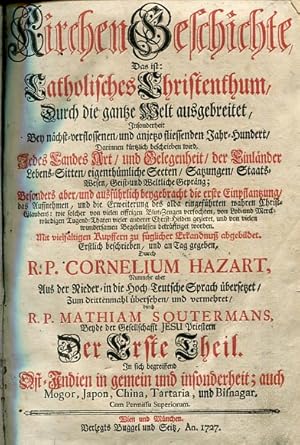 Kirchen-Geschichte,
Das ist:
Catholisches Christenthum,
Durch die gantze Welt ausgebreitet,
Insonderheit
Bey nächst-verflossenen, und anjetzo fliessenden Jahr-Hundert,
Darinnen kürtzlich beschrieben wird,
Jedes Landes Art, und Gelegenheit, der Einländer
Lebens-Sitten, eigenthümliche Secten, Satzungen, Staats-
Wesen, Geist- und Weltliche Gepräng;
Besonders aber, und ausführlich beygebracht die erste Einpflantzung,
das Aufnehmen, und die Erweiterung des allda eingeführten wahren Christ-
Glaubens: wie solcher von vielen eifrigen Blut-Zeugen verfochten, von Lob- und Merck-
würdigen Tugend-Thaten vieler anderer Christ-Helden gezieret, und von vielen
wundersamen Begebnüssen bekräfftiget worden.
Mit vielfältigen Kupffern zu füglicher Erkandnuß abgebildet.
Erstlich beschrieben, und an Tag gegeben,
Durch
R. P. CORNELIUM HAZART,
Nunmehr aber
Aus der Nieder- in die Hoch-Teutsche Sprach übersetzet,
Zum drittenmahl übersehen, und vermehret,
durch
R. P. MATHIAM SOUTERMANS,
Beyde der Gesellschafft JESU Priestern
Der Erste Theil.
In sich begreiffend
Ost-Indien in gemein und insonderheit; auch
Mogor, Japon, China, Tartaria, und Bisnagar,
Cum Permissu Superiorum.
Wien und München,
Verlegts Buggel und Seitz, An. 1727.